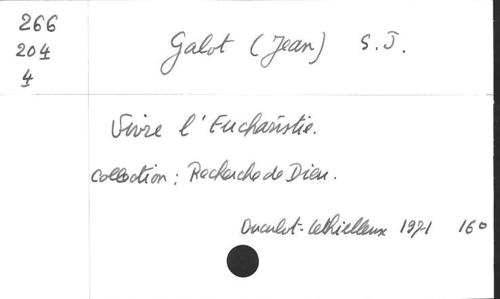 266
204
4
Galot (Jean) S.J.
Vivre l'Eucharistie.
Collection : Recherche de Dieu.
Duculot-Lethielleux 1971 16°